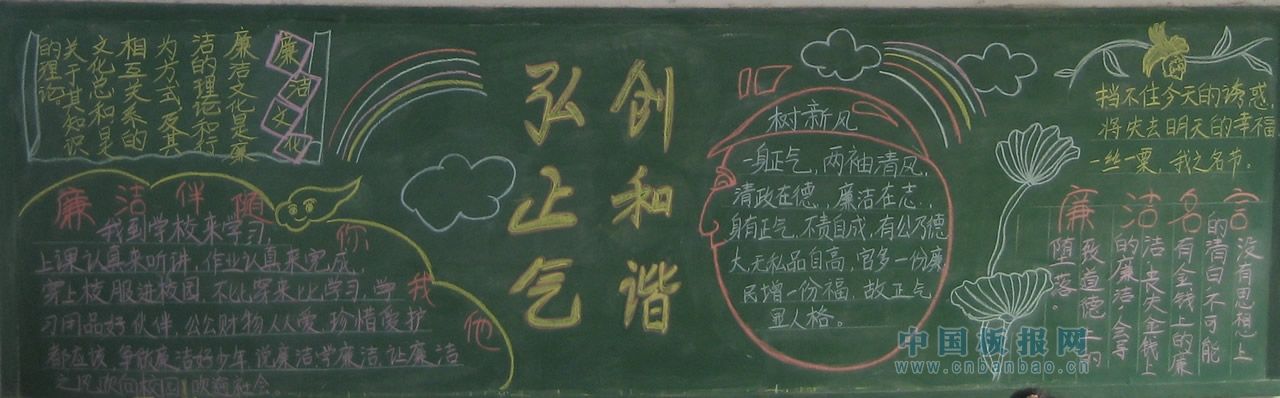 廉洁文化
廉洁文化是廉
洁的理论和行
为方式及其
相互关系的
文化总和是
关于其知识
的理论
廉洁伴随你我他
我到学校来学习,
上课认真来听讲,作业认真来完成,
穿上校服进校园,不比穿来比学习,学
习用品好伙伴,公公财物人人爱,珍惜爱护
都应该,争做廉洁好少年,说廉洁,学廉洁,让廉洁
之风吹向校园,吹遍社会。
创和谐
弘止气
树新风
一身正气,两袖清风,
清政在德,廉洁在志,
身有正气,不责自成,有公乃德
大,无私品自高,官多一份廉
民增一份福,故正气
里人格。
挡不住今天的诱惑,
将失去明天的幸福
一丝一粟,我之名节。
廉洁名言
没有思想上
的清白不可能
有金钱上的廉
洁,丧失金钱上
的廉洁,会导
致道德上的
随落。
中国板报网
www.cnbanbao.cn